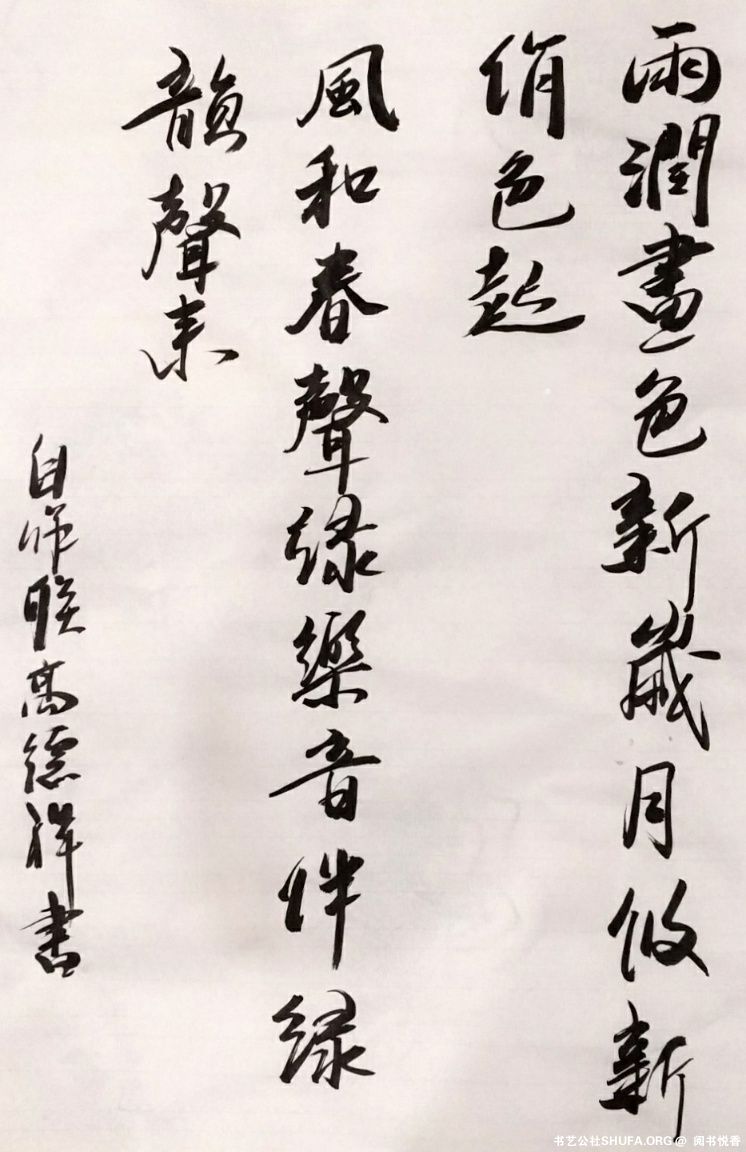 雨潤畫色新歲月攸新
俏色起
風和春聲绿樂音伴绿
韻聲来
自作联高德祥書
书艺公社SHUFA.ORG@ 阅书悦香